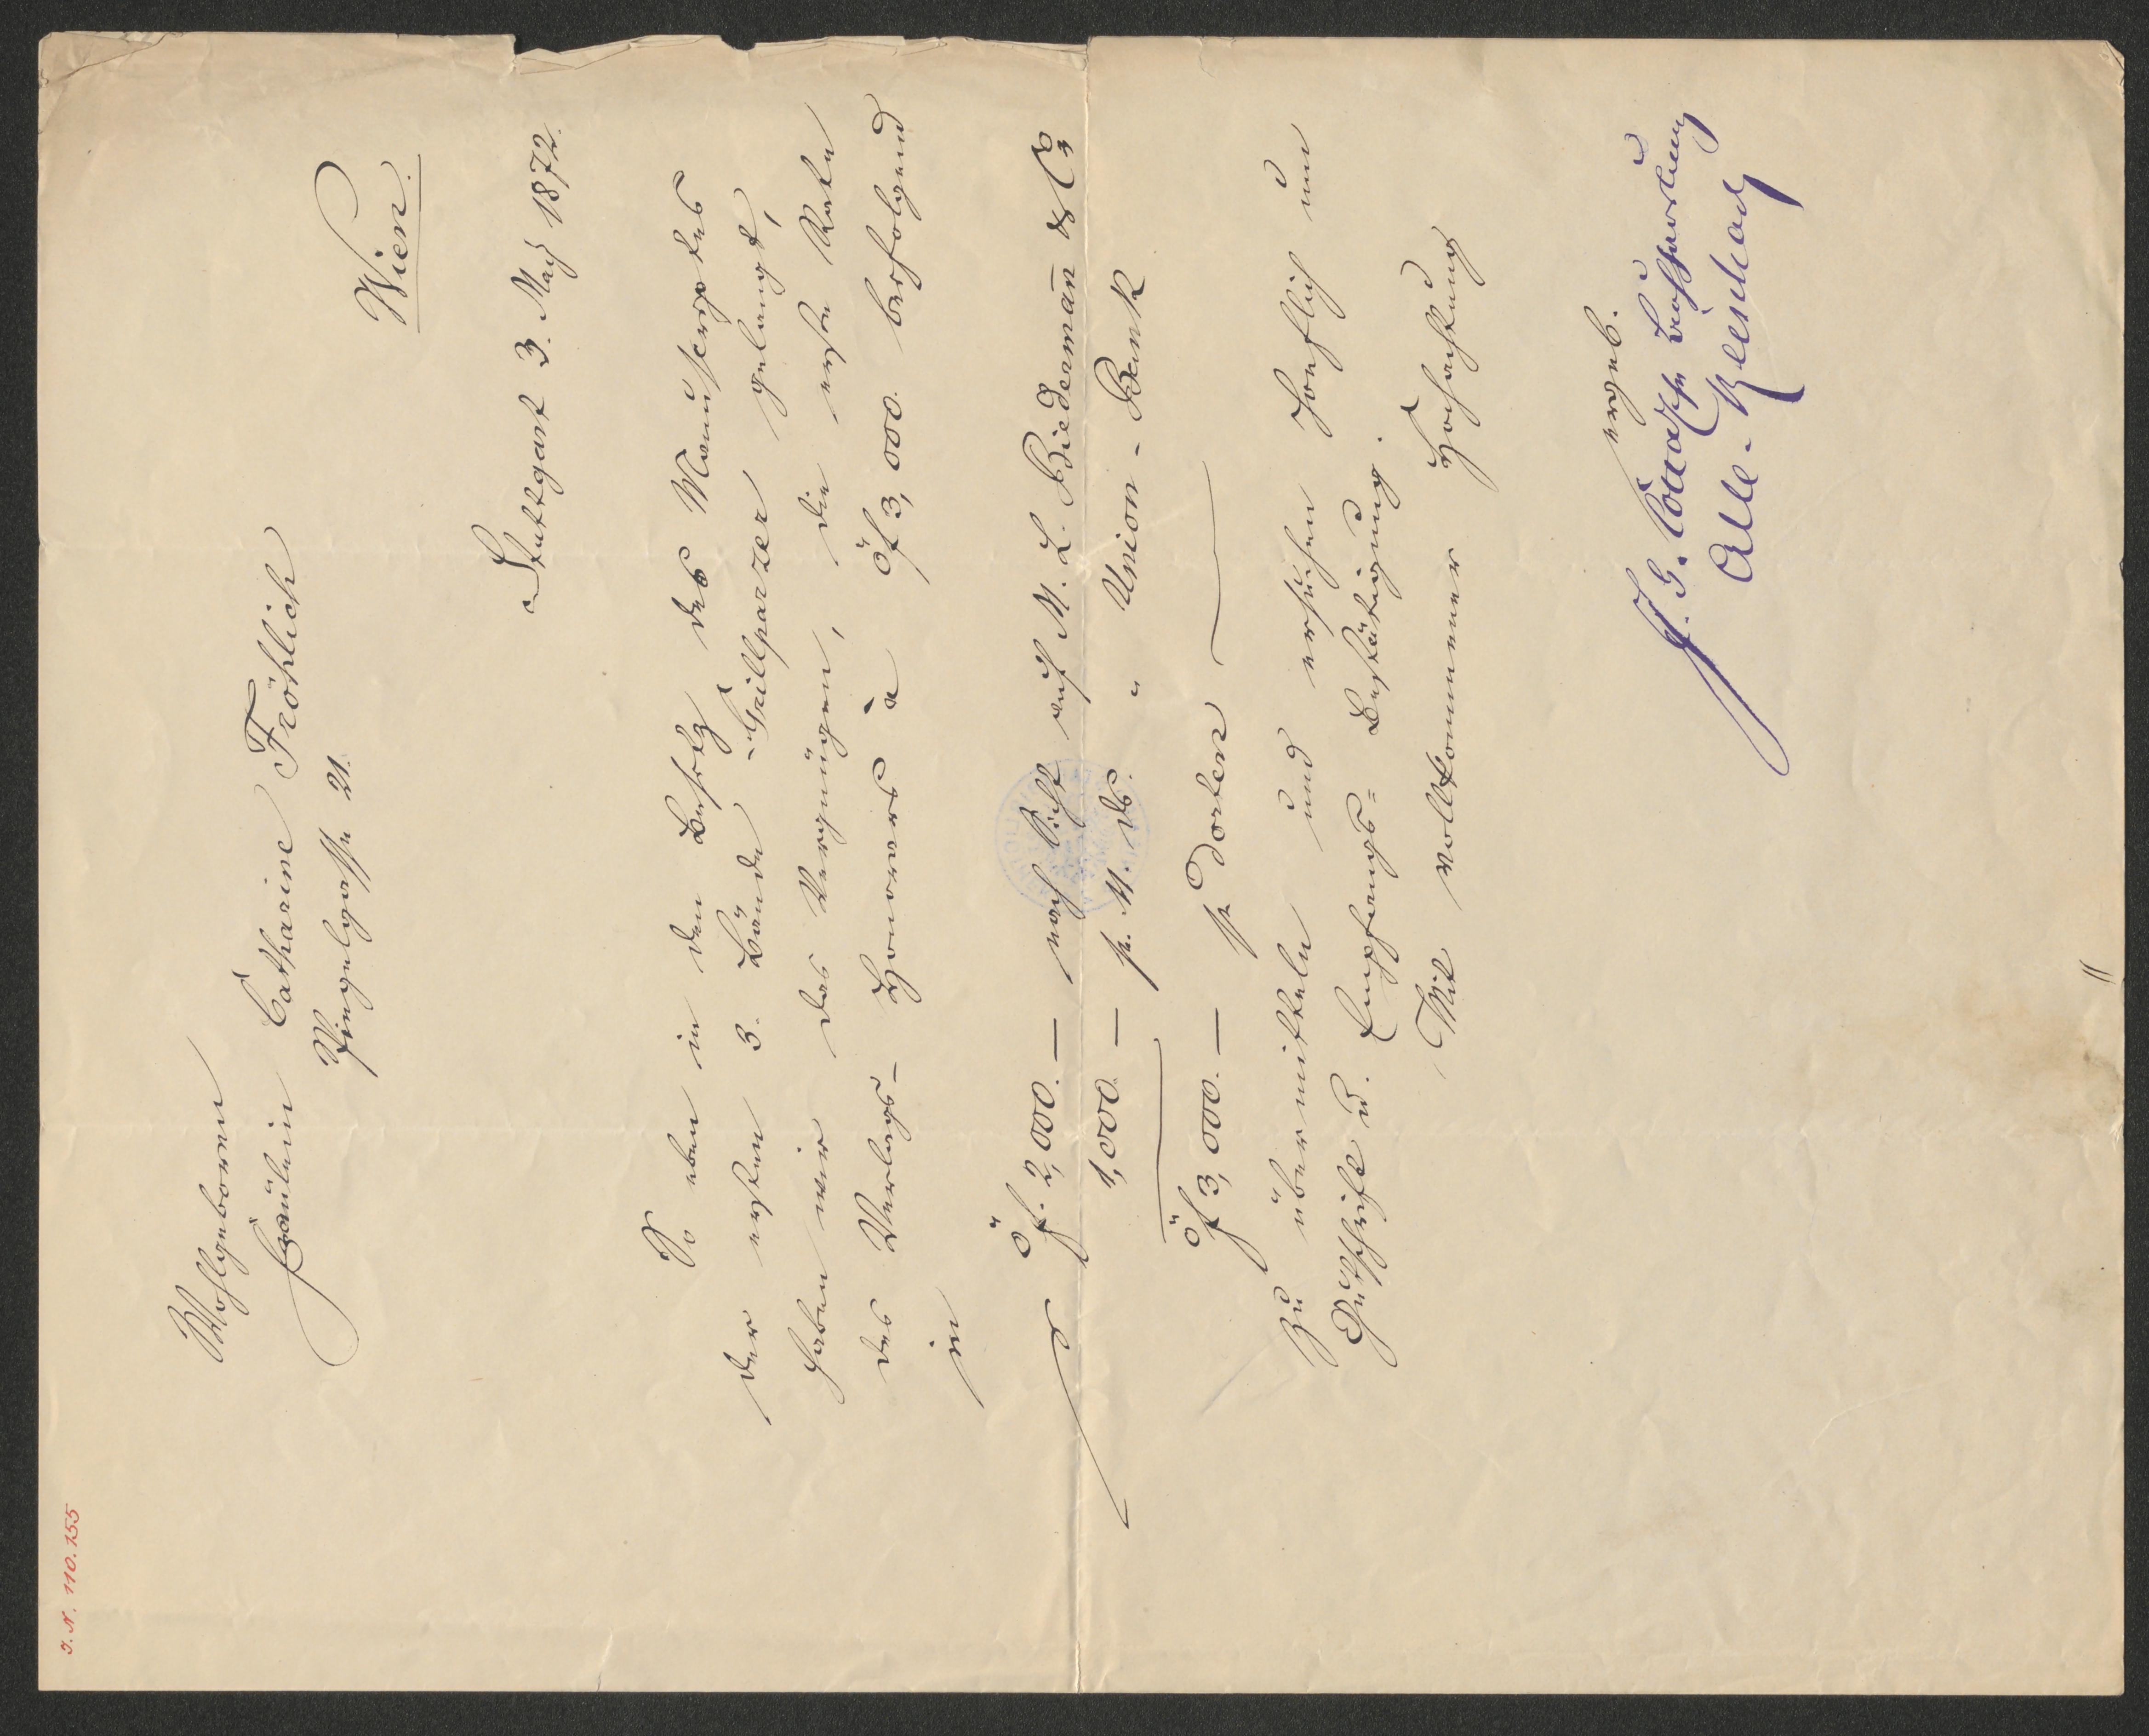 J. N. 110.155
Wohlgeboren
Fräulein Catharine Fröhlich
Spiegelgasse 21.
Wien.
Stuttgart 3. May 1872.
So eben in den Besitz des Manuscriptes
der ersten 3. Bände "Grillparzer" gelangt,
haben wir das Vergnügen, die erste Rate
des Verlags- Honorars à öf 3,000. beifolgend
in
öf. 2,000. — nach Sicht auf M. L. Biedermañ & Co
1,000. — pr. M. ds. " Union-Bank
öf 3,000. — pr dorten
zu übermitteln und ersuchen höflich um
Gutschrift u. Empfangs= Bestätigung.
Mit vollkommener Hochachtung
ergeb.
J. G. Cotta'sche Buchhandlung